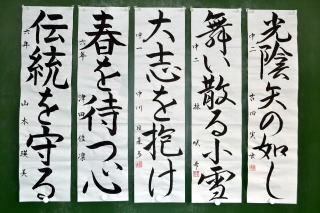 光陰矢の如し
中二
舞い散る小雪
中二
大志を抱け
中一 中川
春を待つ心
六年 津田
伝統を守る
六年 山本 瑛美